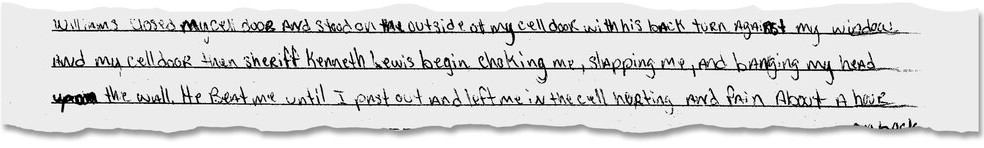 Williams closed my cell dooR And stood on the outside of my cell dooR with his back turn Against my window
And my cell dooR then sheriff Kenneth Lewis begin choking me, slapping me, and banging my head
upon the wall. He Beat me until I past out and left me in the cell hurting And Pain About A hour
back